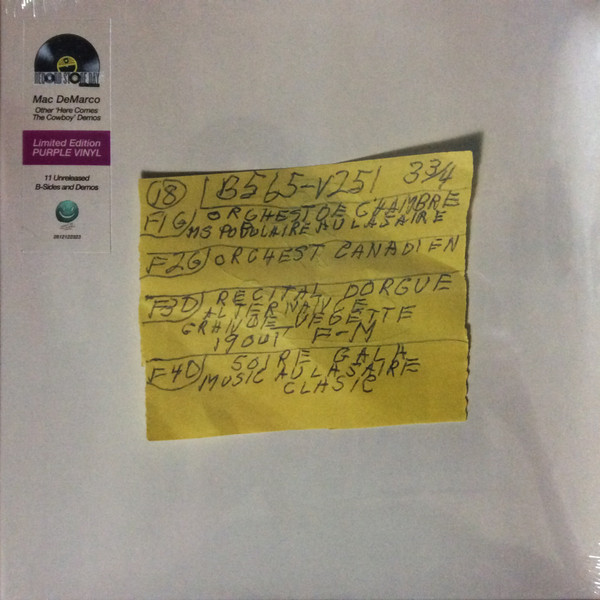 RECORD STORE DAY
Mac DeMarco
Other 'Here Comes
The Cowboy' Demos
Limited Edition
PURPLE VINYL
11 Unreleased
B-Sides and Demos
18 B565-V251 33/4
F1G ORCHEST DE CHAMBRE
MS POPULAIRE AU LASAIRE
F2G ORCHEST CANADIEN
F3D RECITAL DORGUE
ALTERNANCE
GRANDE VEGETTE
19 OUT F-M
F4D SOIRE GALA
MUSIC AU LASAIRE
CLASIC